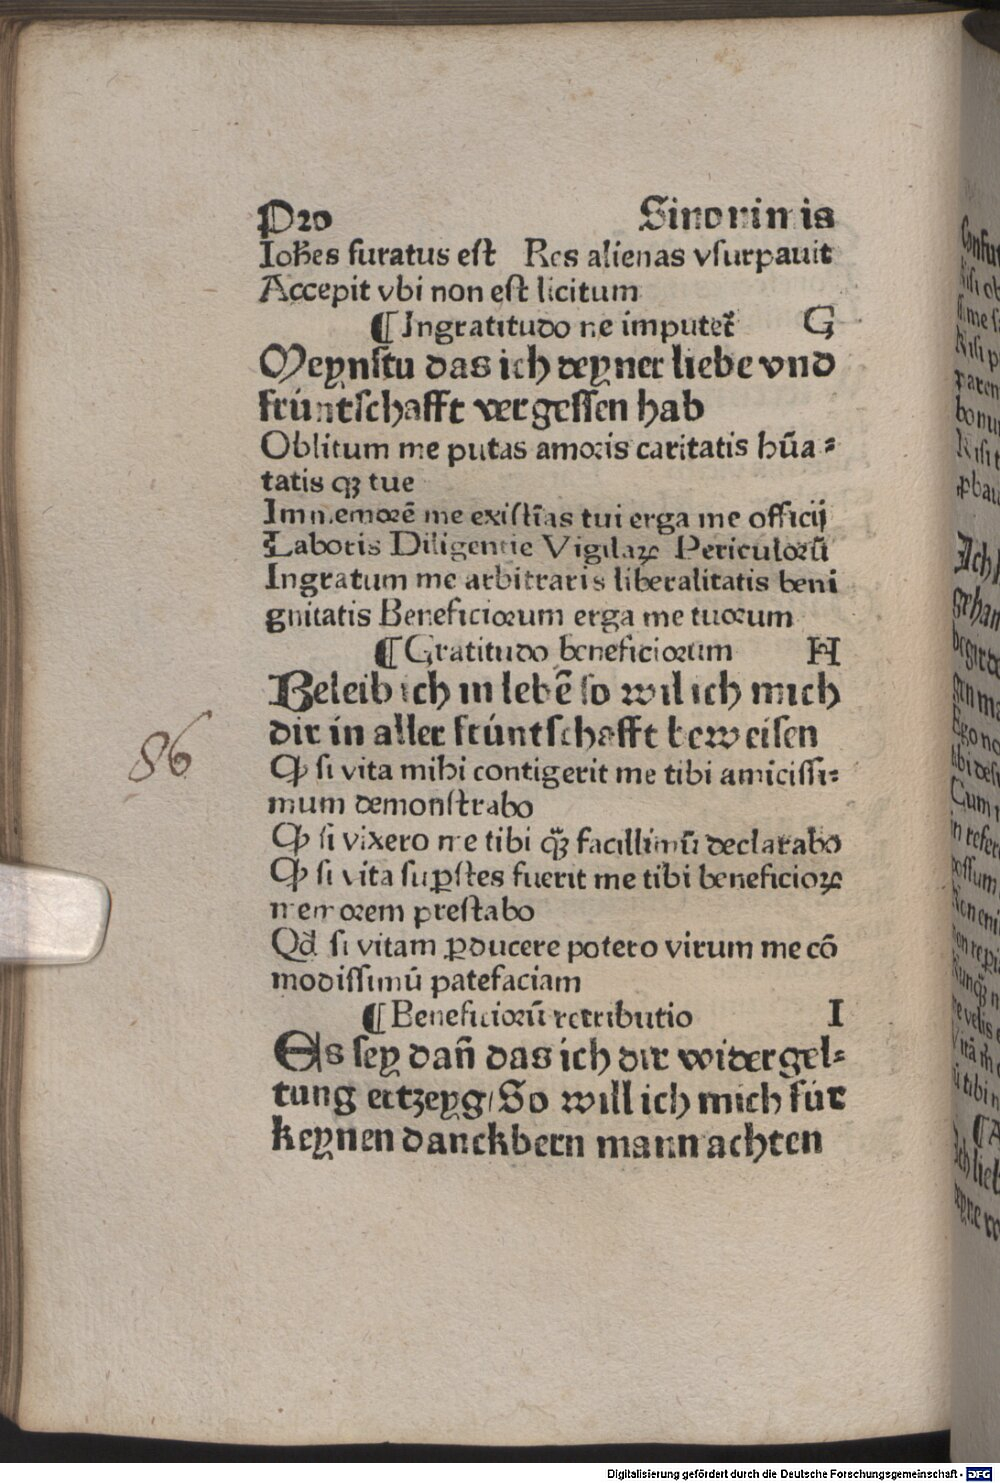 Pro Sinonimis
Ioħes furatus est Res alienas vsurpauit
Accepit vbi non est licitum
¶ Ingratitudo ne imputet᷑ G
Meynstu das ich deyner liebe vnd
früntschafft vergessen hab
Oblitum me putas amoris caritatis hũa⸗
tatis qꝫ tue
Immemorẽ me existĩas tui erga me officij
Laboris Diligentie Vigilaꝝ Periculorũ
Ingratum me arbitraris liberalitatis beni
gnitatis Beneficiorum erga me tuorum
¶ Gratitudo beneficiorum H
Beleib ich in lebẽ so wil ich mich
dir in aller früntschafft beweisen
Ꝙ si vita mihi contigerit me tibi amicissi⸗
mum demonstrabo
Ꝙ si vixero me tibi q̃ꝫ facillimũ declarabo
Ꝙ si vita suꝑstes fuerit me tibi beneficioꝝ
memorem prestabo
Qđ si vitam ꝓducere potero virum me cõ
modissimũ patefaciam
¶ Beneficiorũ retributio I
Es sey dañ das ich dir widergel⸗
tung ertzeyg/ So will ich mich für
keynen danckbern mann achten
86
Digitalisierung gefördert durch die Deutsche Forschungsgemeinschaft - DFG